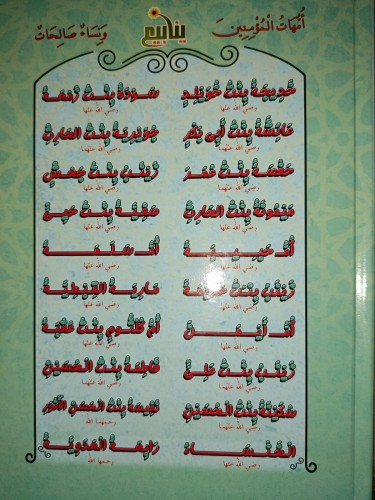 أمهات المؤمنين ينابيع ونساء صالحات
خديجة بنت خويلد سودة بنت زمعة
رضي الله عنها رضي الله عنها
عائشة بنت أبي بكر جويرية بنت الحارث
رضي الله عنهما رضي الله عنها
حفصة بنت عمر زينب بنت جحش
رضي الله عنهما رضي الله عنها
ميمونة بنت الحارث صفية بنت حيي
رضي الله عنها رضي الله عنها
أم حبيبة أم سلمة
رضي الله عنها رضي الله عنها
زينب بنت خزيمة مارية القبطية
رضي الله عنها رضي الله عنها
أم أيمن أم كلثوم بنت عقبة
رضي الله عنها رضي الله عنها
زينب بنت علي فاطمة بنت الحسين
رضي الله عنهما رضي الله عنهما
سكينة بنت الحسين نفيسة بنت الحسن الأنور
رضي الله عنهما رحمهما الله
الخنساء رابعة العدوية
رضي الله عنها رحمها الله